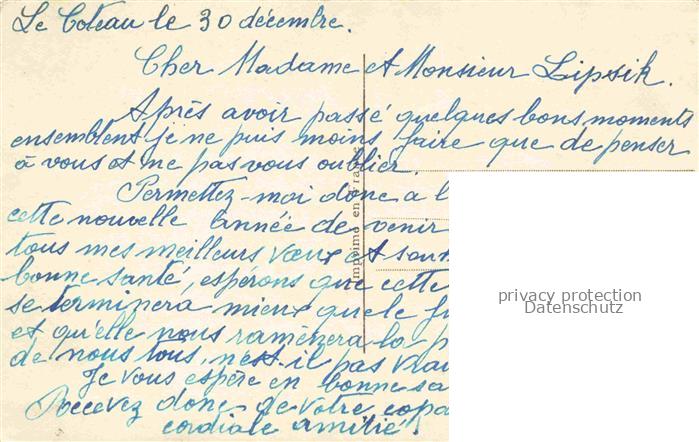 Le Coteau le 30 décembre.
Cher Madame et Monsieur Lipsik.
Après avoir passé quelques bons moments
ensemblent je ne puis moins faire que de penser
à vous et ne pas vous oublier.
Permettez-moi donc a l
cette nouvelle année de venir
tous mes meilleurs vœux et souh
bonne santé, espérons que cette
se terminera mieux que le
et qu'elle nous ramènera la p
de nous tous, n'est-il pas vrai
Je vous espère en bonne sa
Recevez donc de votre copa
cordiale amitié.
Imprimé en
privacy protection
Datenschutz